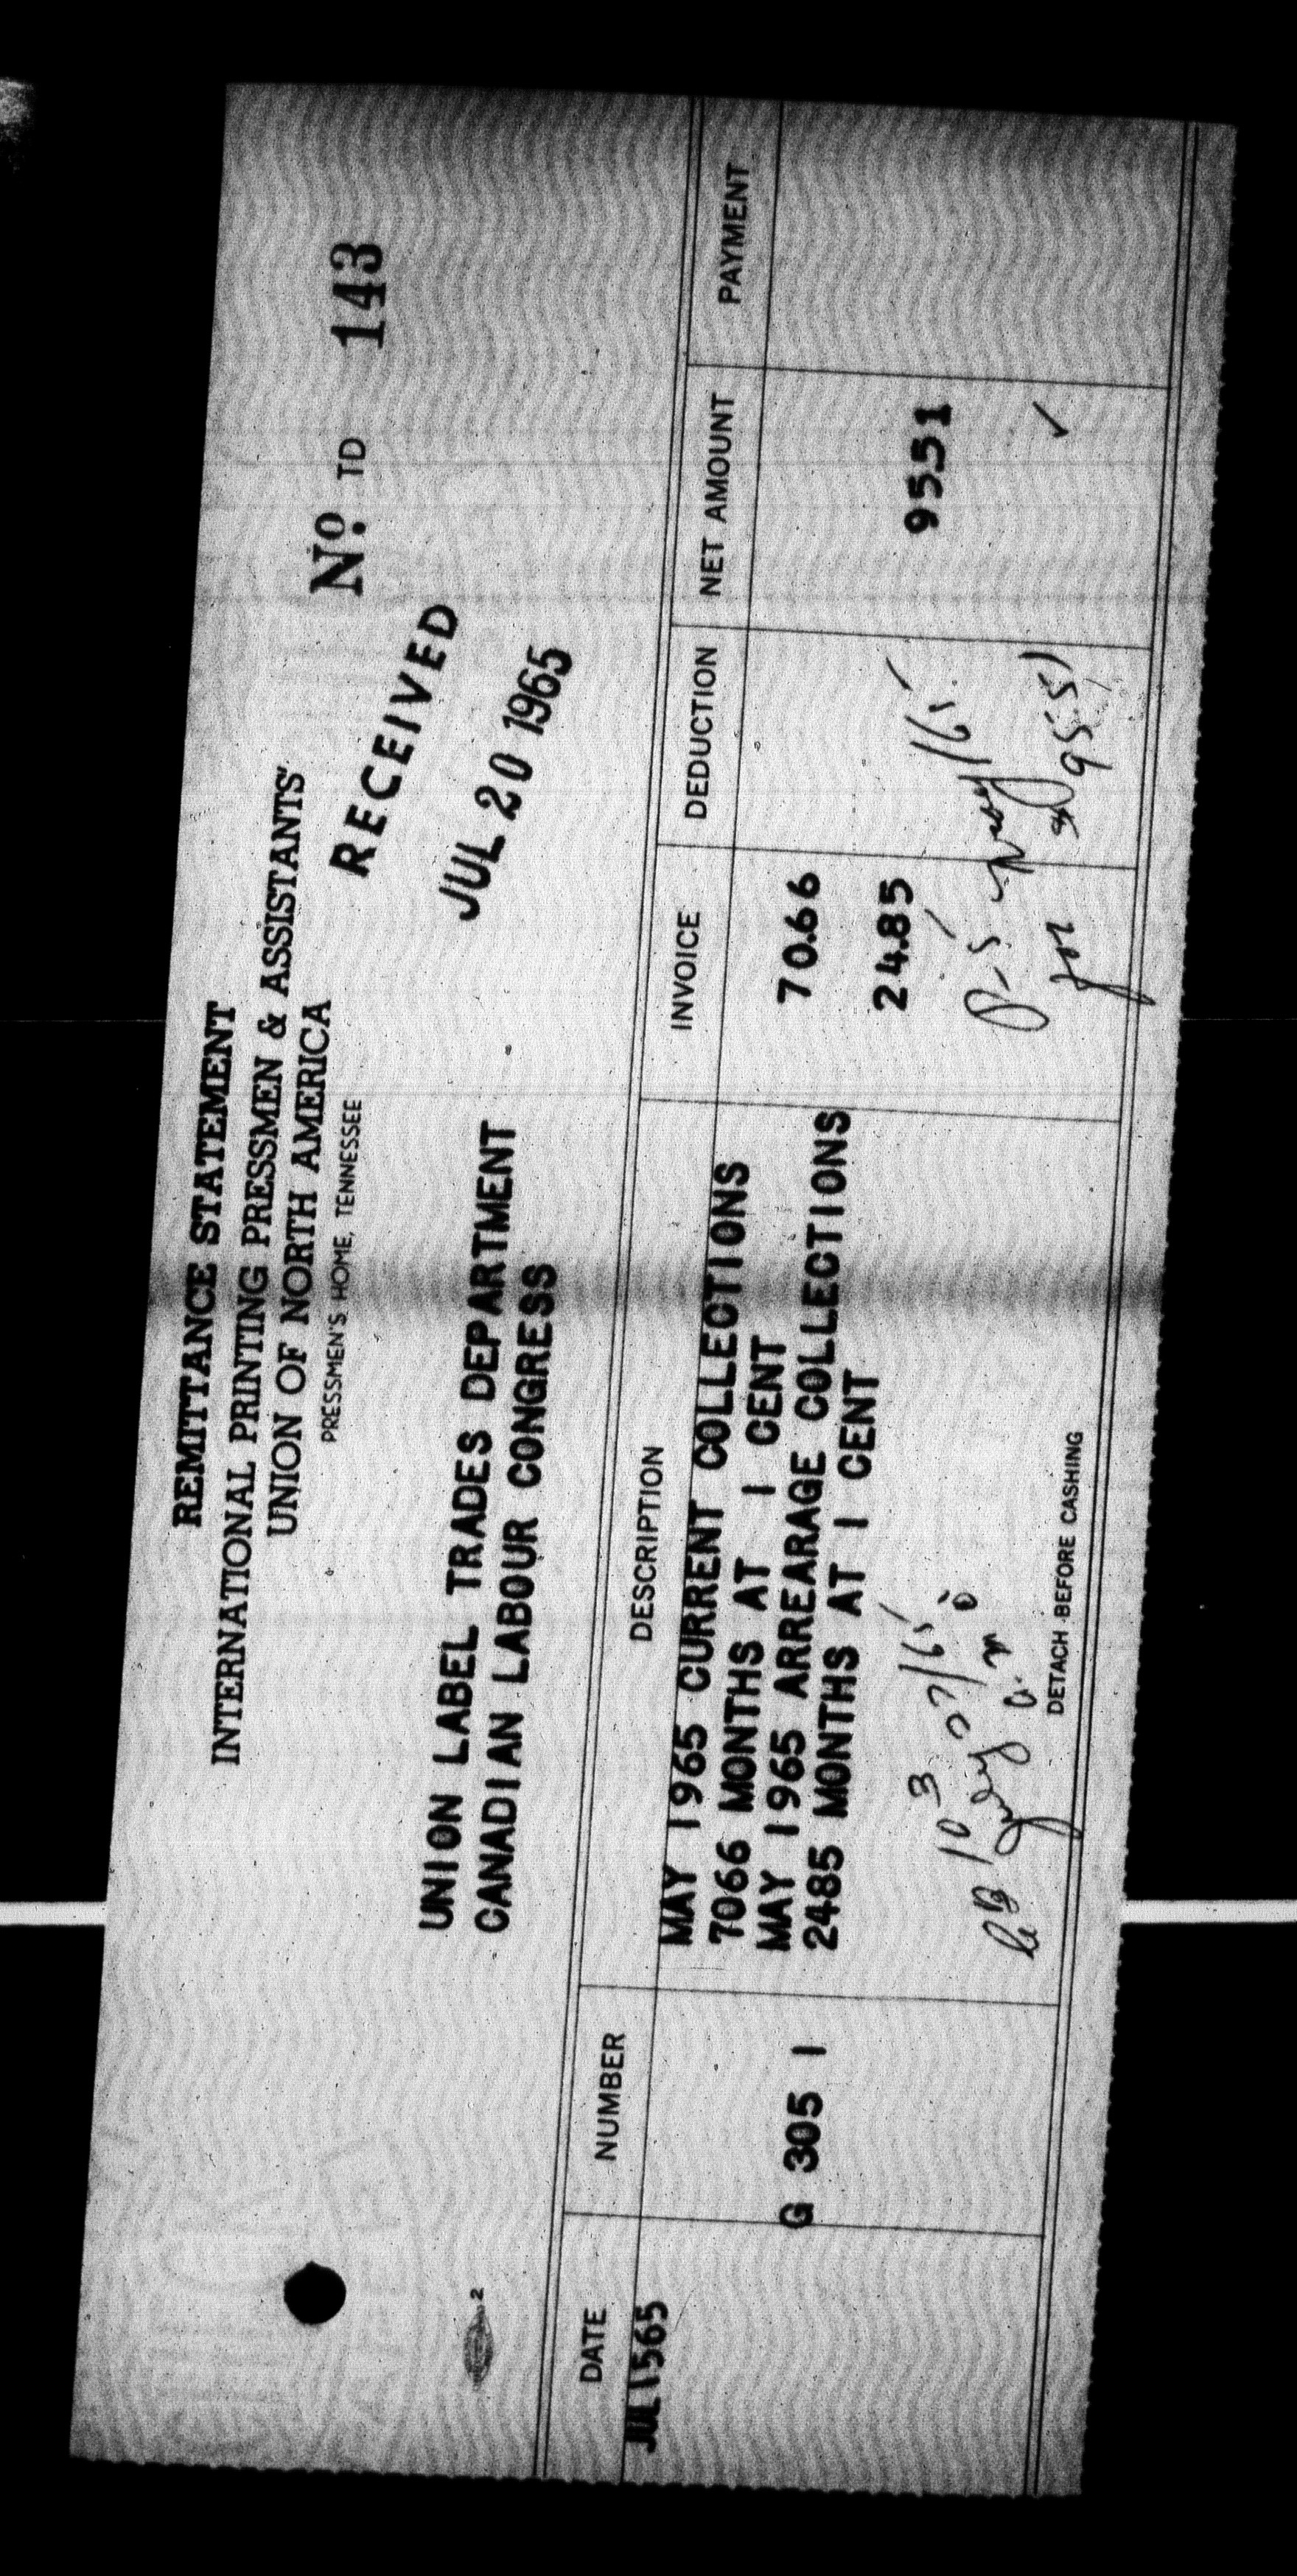 REMITTANCE STATEMENT
INTERNATIONAL PRINTING PRESSMEN & ASSISTANTS'
UNION OF NORTH AMERICA
PRESSMEN'S HOME, TENNESSEE
No. TD 143
RECEIVED
JUL 20 1965
UNION LABEL TRADES DEPARTMENT
CANADIAN LABOUR CONGRESS
DATE NUMBER DESCRIPTION INVOICE DEDUCTION NET AMOUNT PAYMENT
JUL 1565
MAY 1965 CURRENT COLLECTIONS
7066 MONTHS AT 1 CENT 70.66
MAY 1965 ARREARAGE COLLECTIONS
G 305 1
2485 MONTHS AT 1 CENT 24.85
95.51
103
July 07/65
P-5 May/65
for 95.51
DETACH BEFORE CASHING